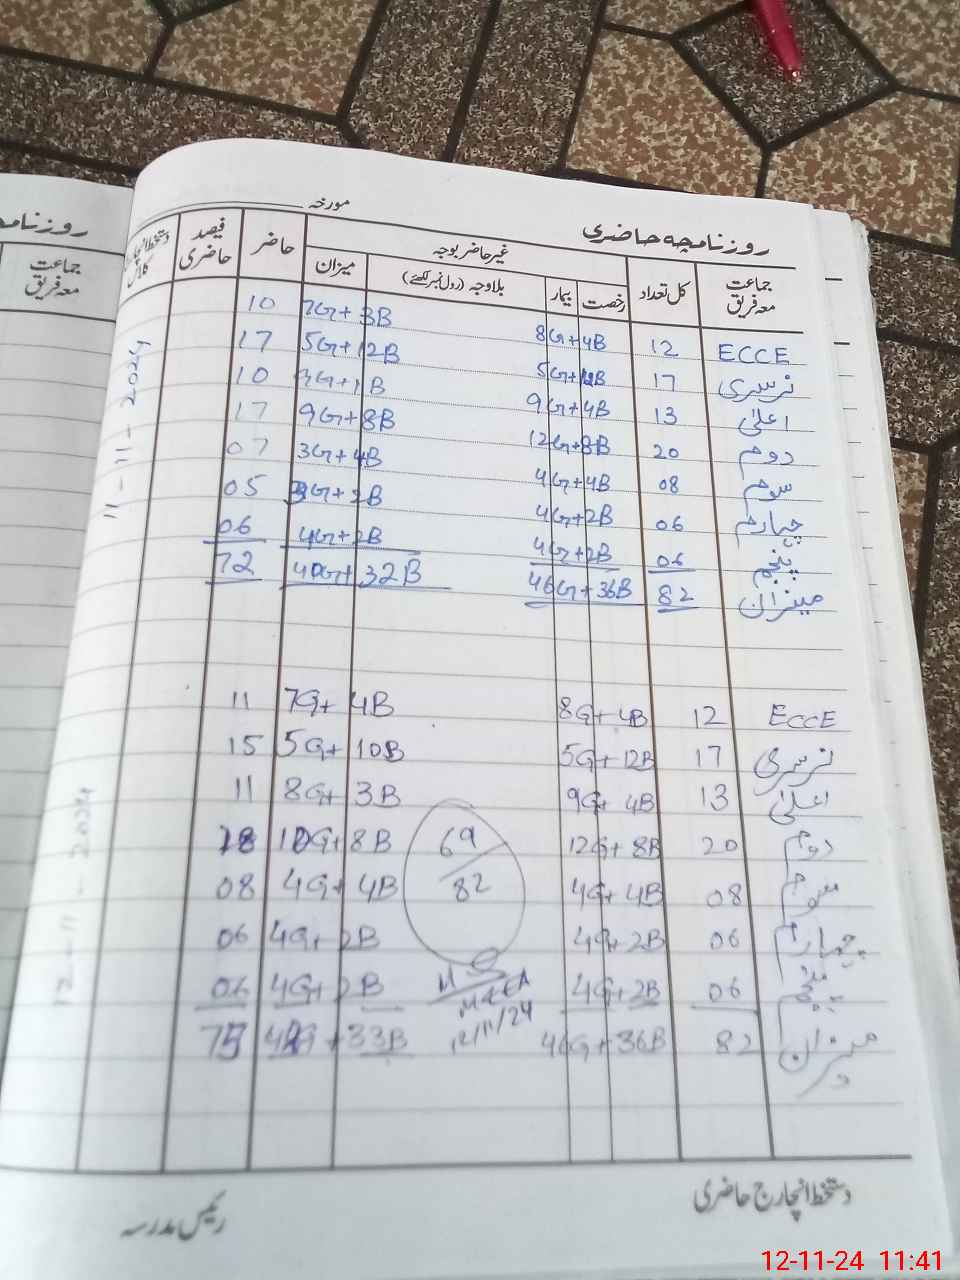 روزنامچہ حاضری
مورخہ
جماعت معہ فریق کل تعداد غیر حاضر بوجہ حاضر فیصد حاضری دستخط انچارج کلاس
رخصت بیمار بلاوجہ (رول نمبر لکھئے) میزان
ECCE 12 8G+4B 7G+3B 10
نرسری 17 5G+12B 5G+12B 17
اعلیٰ 13 9G+4B 10
دوم 20 12G+8B 9G+8B 17
سوم 08 4G+4B 3G+4B 07
چہارم 06 4G+2B 3G+2B 05
پنجم 06 4G+2B 4G+2B 06
میزان 82 46G+36B 40G+32B 72
11-11-2024
ECCE 12 8G+4B 7G+4B 11
نرسری 17 5G+12B 5G+10B 15
اعلیٰ 13 9G+4B 8G+3B 11
دوم 20 12G+8B 10G+8B 18
سوم 08 4G+4B 4G+4B 08
چہارم 06 4G+2B 4G+2B 06
پنجم 06 4G+2B 4G+2B 06
میزان 82 46G+36B 42G+33B 75
69/82
12/11/24
12-11-2024
دستخط انچارج حاضری
رئیس مدرسہ
جماعت معہ فریق
12-11-24 11:41